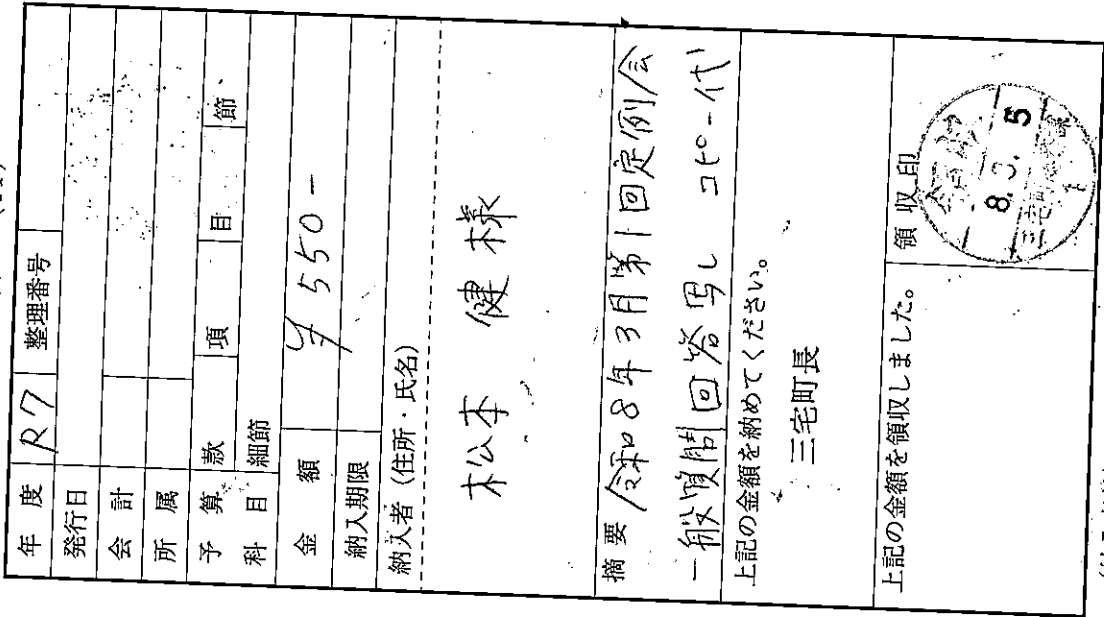 年度 R7 整理番号
発行日
会計
所属
予算科目 款 項 目 節
細節
金額 ¥550-
納入期限
納入者(住所・氏名)
松本 健 様
摘要 令和8年3月第1回定例会
一般質問回答写し コピー代
上記の金額を納めてください。
三宅町長
上記の金額を領収しました。
領収印
8.3.5
三宅町